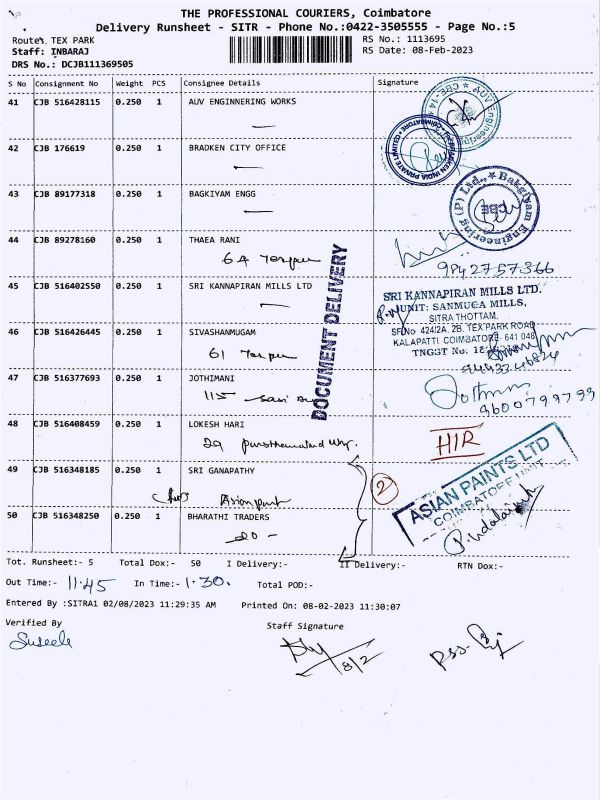 THE PROFESSIONAL COURIERS, Coimbatore
Delivery Runsheet - SITR - Phone No.:0422-3505555 - Page No.:5
Route: TEX PARK
RS No.: 1113695
Staff: INBARAJ
RS Date: 08-Feb-2023
DRS No.: DCJB111369505
S No Consignment No Weight PCS Consignee Details Signature
41 CJB 516428115 0.250 1 AUV ENGINNERING WORKS
42 CJB 176619 0.250 1 BRADKEN CITY OFFICE
43 CJB 89177318 0.250 1 BAGKIYAM ENGG
Bakgiyam Engineering (P) Ltd.,
CBE
44 CJB 89278160 0.250 1 THAEA RANI
64
9842757366
45 CJB 516402550 0.250 1 SRI KANNAPIRAN MILLS LTD
SRI KANNAPIRAN MILLS LTD.
UNIT: SANMUGA MILLS,
SITRA THOTTAM,
SF.No: 424/2A, 2B, TEX PARK ROAD
KALAPATTI, COIMBATORE- 641 048
TNGST No:
DOCUMENT DELIVERY
46 CJB 516426445 0.250 1 SIVASHANMUGAM
61
47 CJB 516377693 0.250 1 JOTHIMANI
115
9600799793
48 CJB 516408459 0.250 1 LOKESH HARI
29
HIR
49 CJB 516348185 0.250 1 SRI GANAPATHY
Asian paint
2
ASIAN PAINTS LTD
COIMBATORE
50 CJB 516348250 0.250 1 BHARATHI TRADERS
- do -
Tot. Runsheet:- 5 Total Dox:- 50 I Delivery:- II Delivery:- RTN Dox:-
Out Time:- 11.45 In Time:- 1.30. Total POD:-
Entered By :SITRA1 02/08/2023 11:29:35 AM Printed On: 08-02-2023 11:30:07
Verified By
Staff Signature
8/2